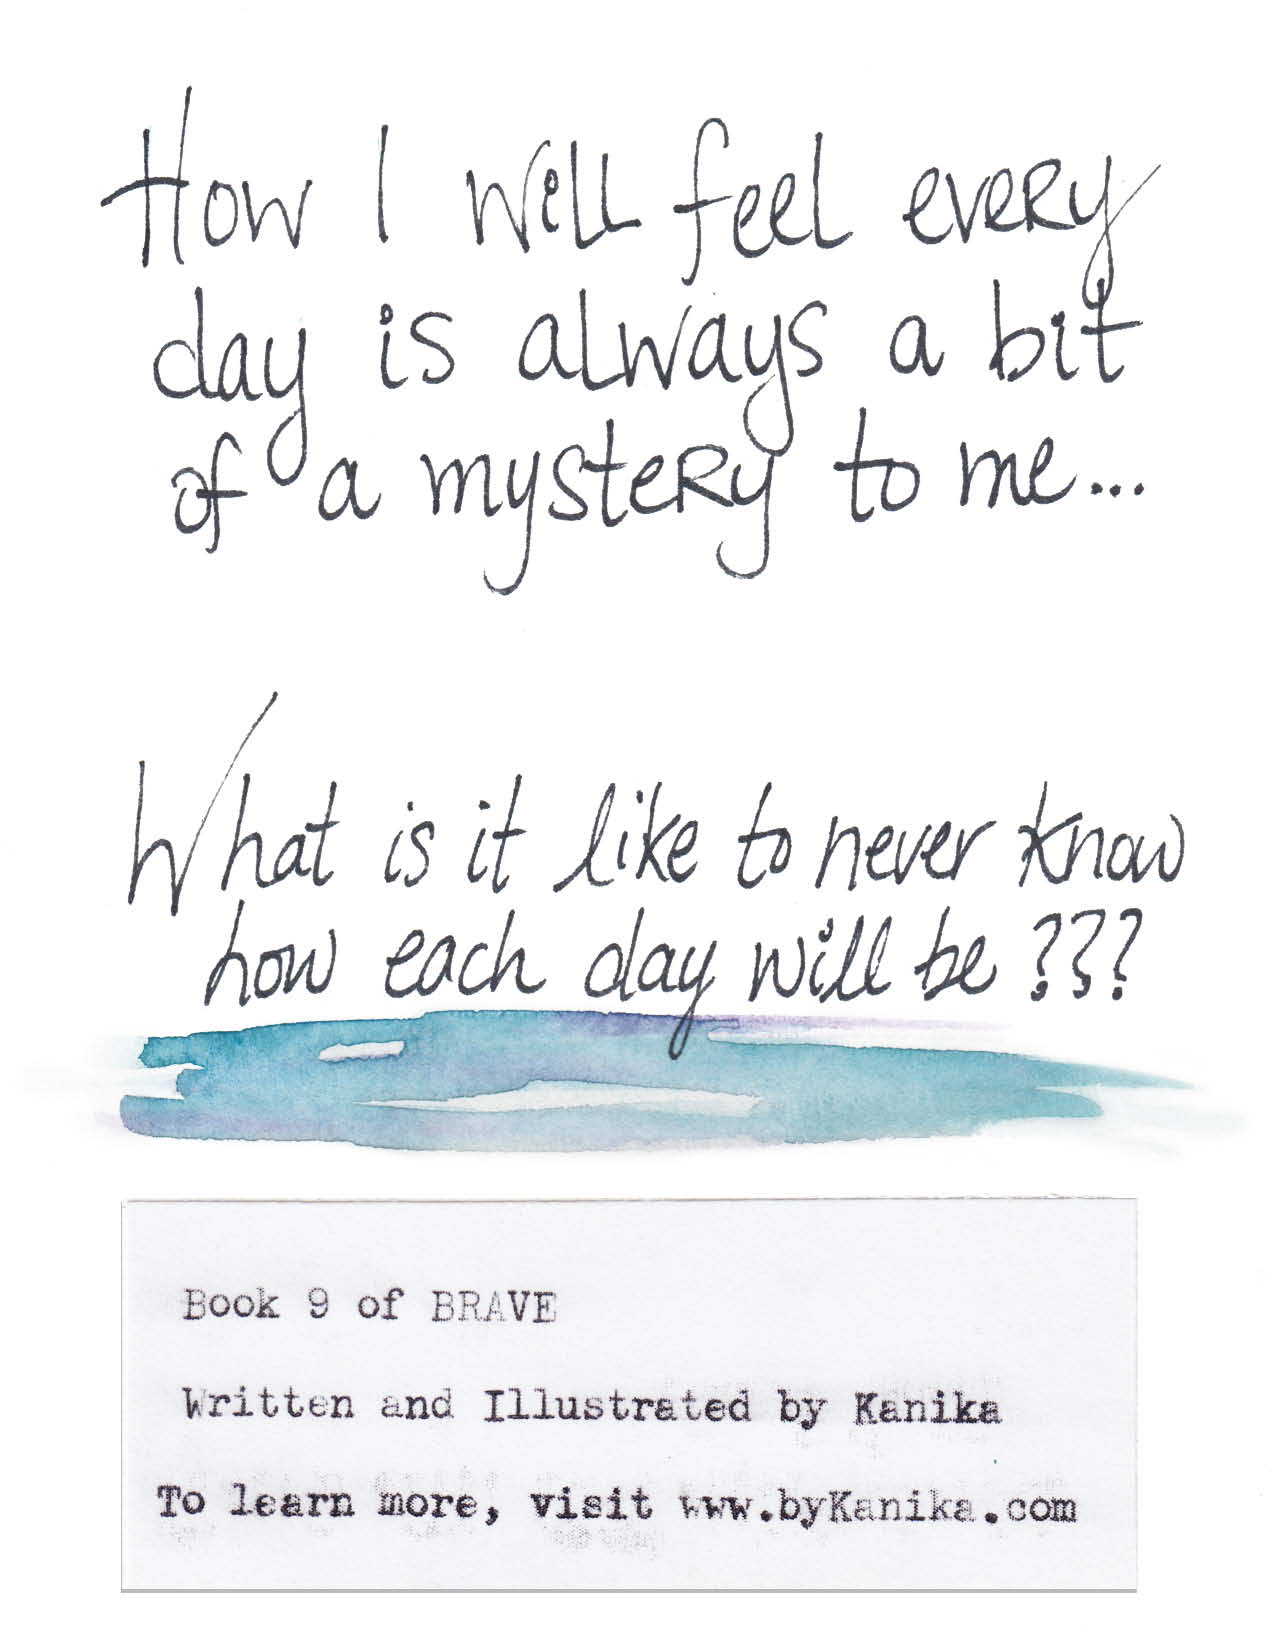 How I will feel every
day is always a bit
of a mystery to me...
What is it like to never know
how each day will be ???
Book 9 of BRAVE
Written and Illustrated by Kanika
To learn more, visit www.byKanika.com